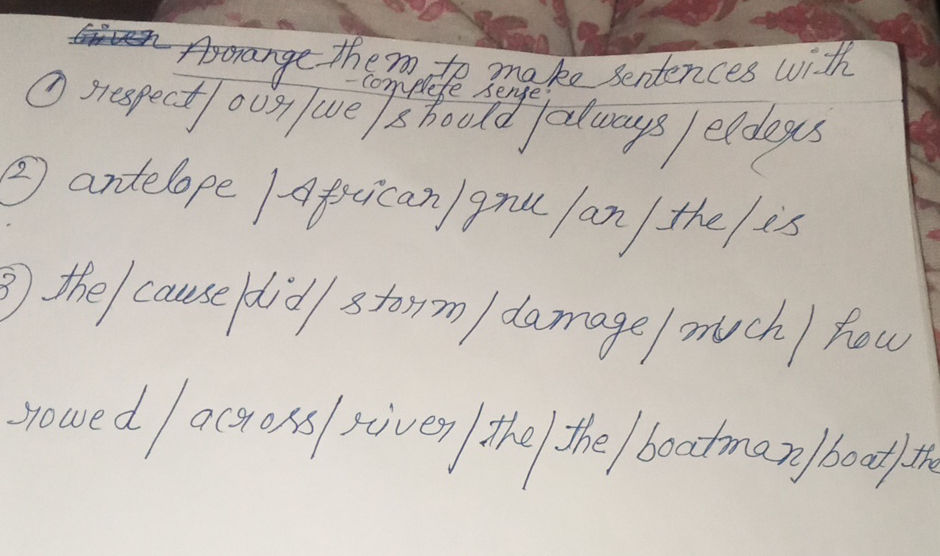 Given Arrange them to make sentences with
complete sense.
① respect / our / we / should / always / elders
② antelope / African / gnu / an / the / is
3) the / cause / did / storm / damage / much / how
rowed / across / river / the / the / boatman / boat / the